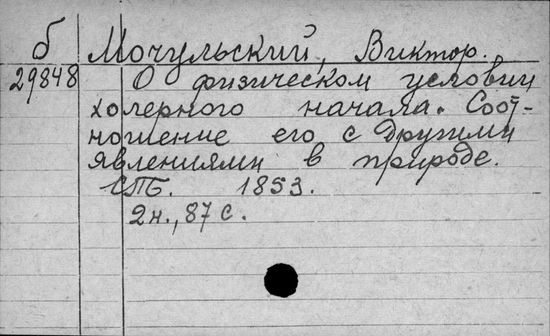 б Мочульский, Виктор.
29848 О физическом условии
холерного начала. Соот-
ношение его с другими
явлениями в природе.
СПБ. 1853.
2н., 87 с.